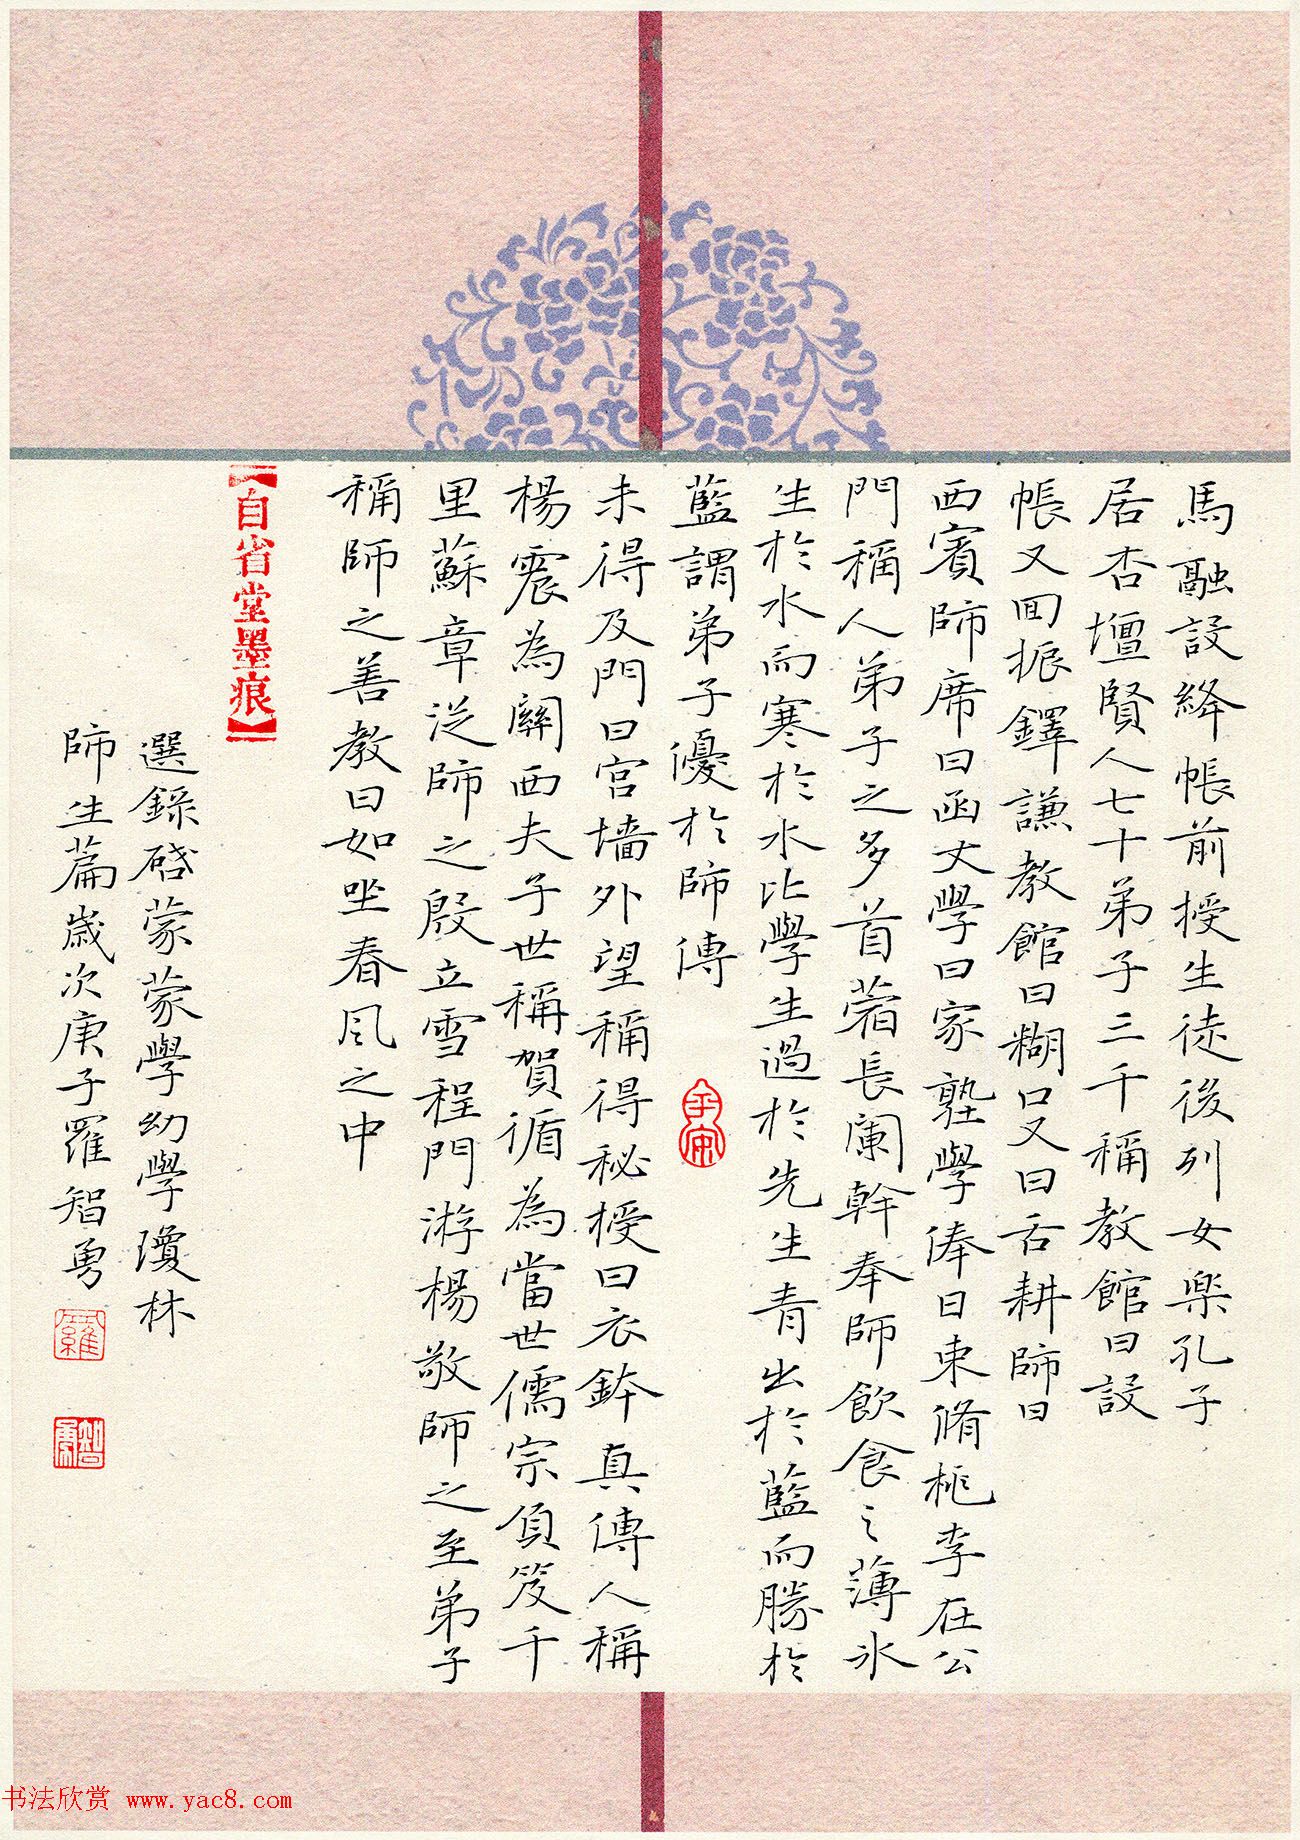 馬融設絳帳前授生徒後列女樂孔子
居杏壇賢人七十弟子三千稱教館曰設
帳又囬振鐸謙教館曰糊口又曰舌耕師曰
西賓師席曰函丈學曰家塾學俸曰束脩桃李在公
門稱人弟子之多首蓿長闌幹奉師飲食之薄冰
生於水而寒於水比學生過於先生青出於藍而勝於
藍謂弟子優於師傳
未得及門曰宮墻外望稱得秘授曰衣鉢真傳人稱
楊震為關西夫子世稱賀循為當世儒宗負笈千
里蘇章從師之殷立雪程門游楊敬師之至弟子
稱師之善教曰如坐春風之中
【自省堂墨痕】
選錄啓蒙蒙學幼學瓊林
師生篇歲次庚子羅智勇
羅
智勇
书法欣赏 www.yac8.com